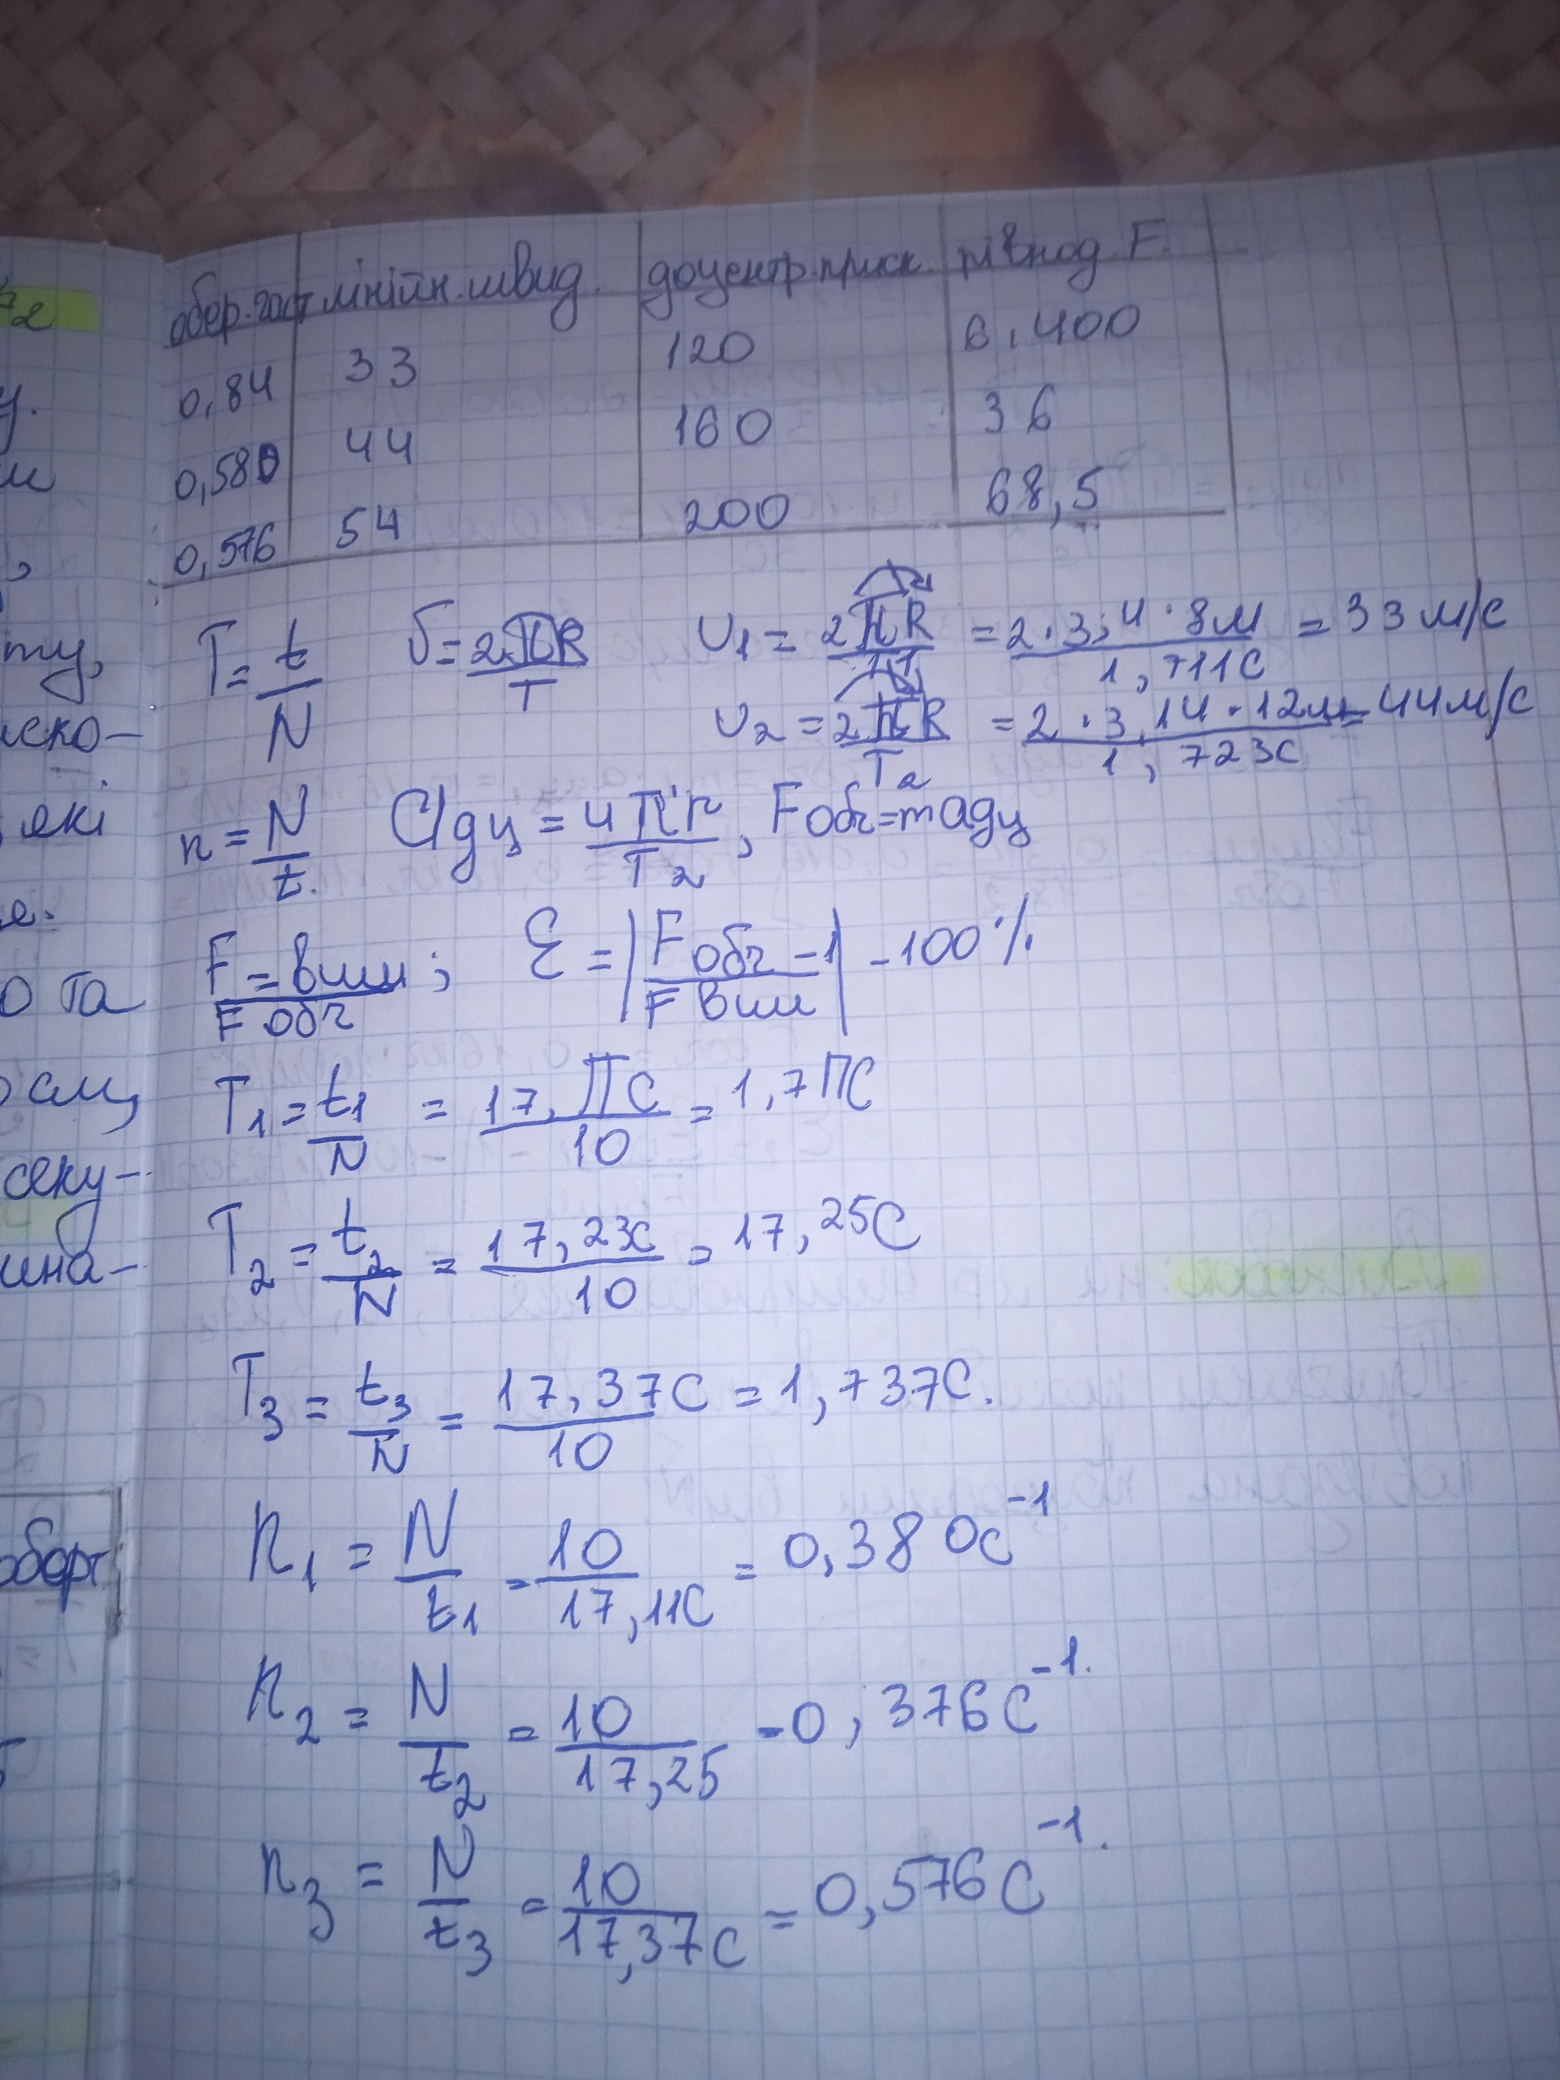 обер.част лінійн.швид. доцентр.приск. рівнод. F.
0,84 33 120 6,400
0,580 44 160 36
0,576 54 200 68,5
T=t/N v=2πR/T υ1=2πR/T1=2·3,4·8м/1,711с=33м/с
υ2=2πR/T2=2·3,14·12м/1,723с=44м/с
n=N/t. aдц=4π²r/T2, Fобч=maдц
F=вим/Fобч; ε=|Fобч-1/Fвим|-100%
T1=t1/N=17,11с/10=1,711с
T2=t2/N=17,23с/10=17,25с
T3=t3/N=17,37с/10=1,737с.
n1=N/t1=10/17,11с=0,380с⁻¹
n2=N/t2=10/17,25-0,376с⁻¹.
n3=N/t3=10/17,37с=0,576с⁻¹.
2
у.
ми
,
ту,
иско-
які
е.
о та
см,
секу-
ина-
оберт